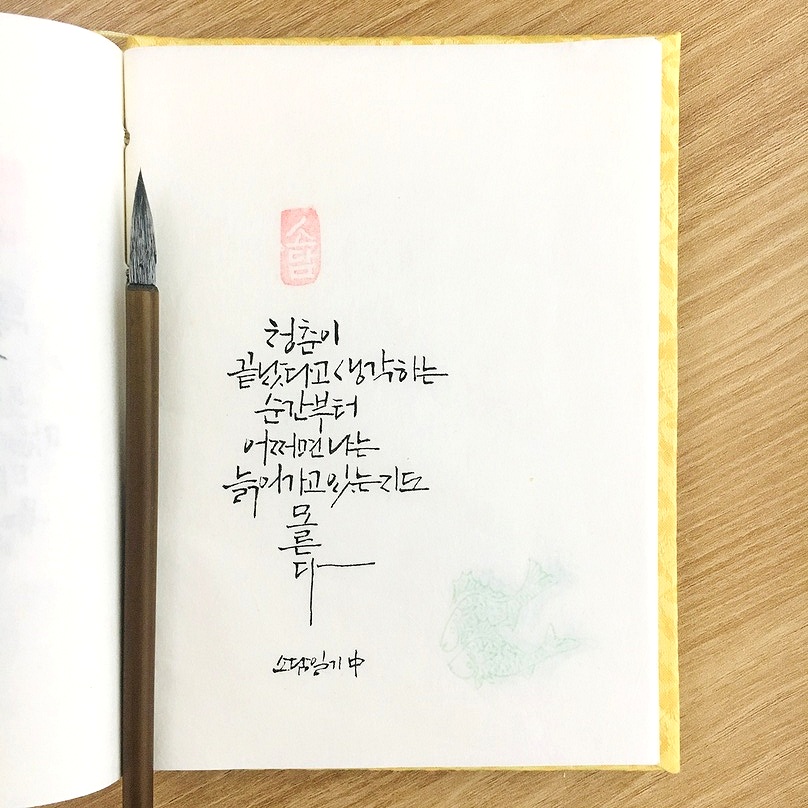 소담
청춘이
끝났다고 생각하는
순간부터
어쩌면 나는
늙어가고 있는지도
모
른
다
소담일기 中